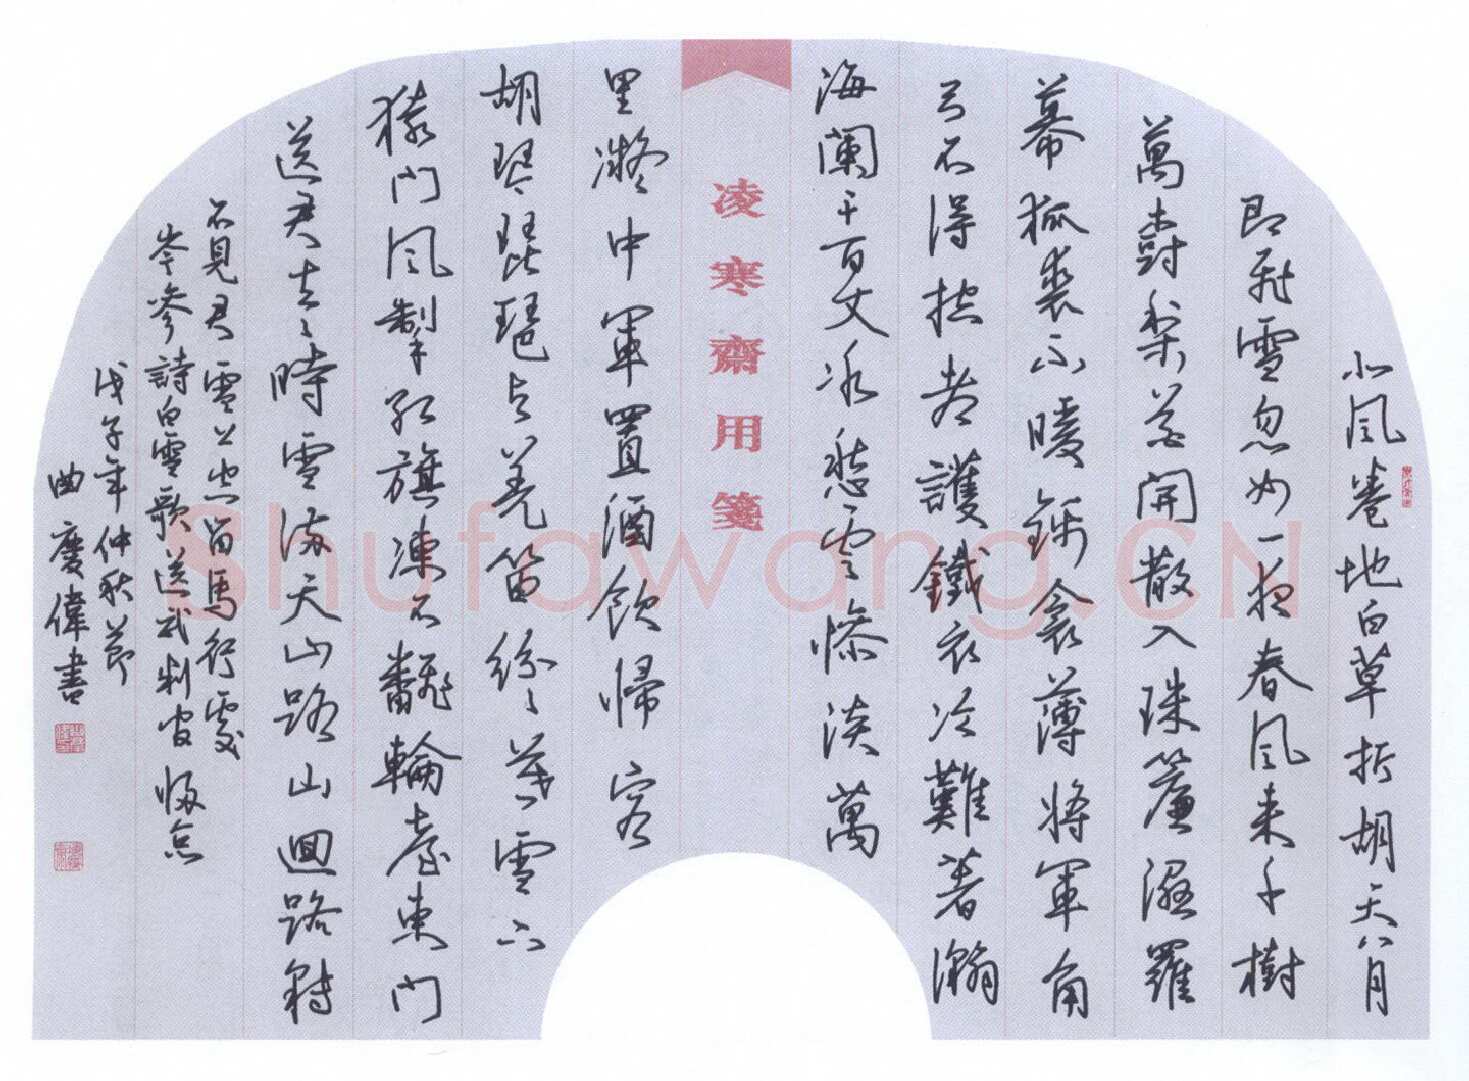 北風卷地白草折胡天八月
即飛雪忽如一夜春風来千樹
萬樹梨花開散入珠簾濕羅
幕狐裘不暖錦衾薄將軍角
弓不得控都護鐵衣冷難著瀚
海闌干百丈冰愁雲慘淡萬
凌寒齋用箋
里凝中軍置酒飲歸客
胡琴琵琶與羌笛紛〻暮雪下
轅門風掣紅旗凍不飜輪臺東門
送君去〻時雪滿天山路山迴路轉
不見君雪上空留馬行處
岑參詩白雪歌送武判官歸京
戊子年仲秋節
曲慶偉書
Shufawang.CN